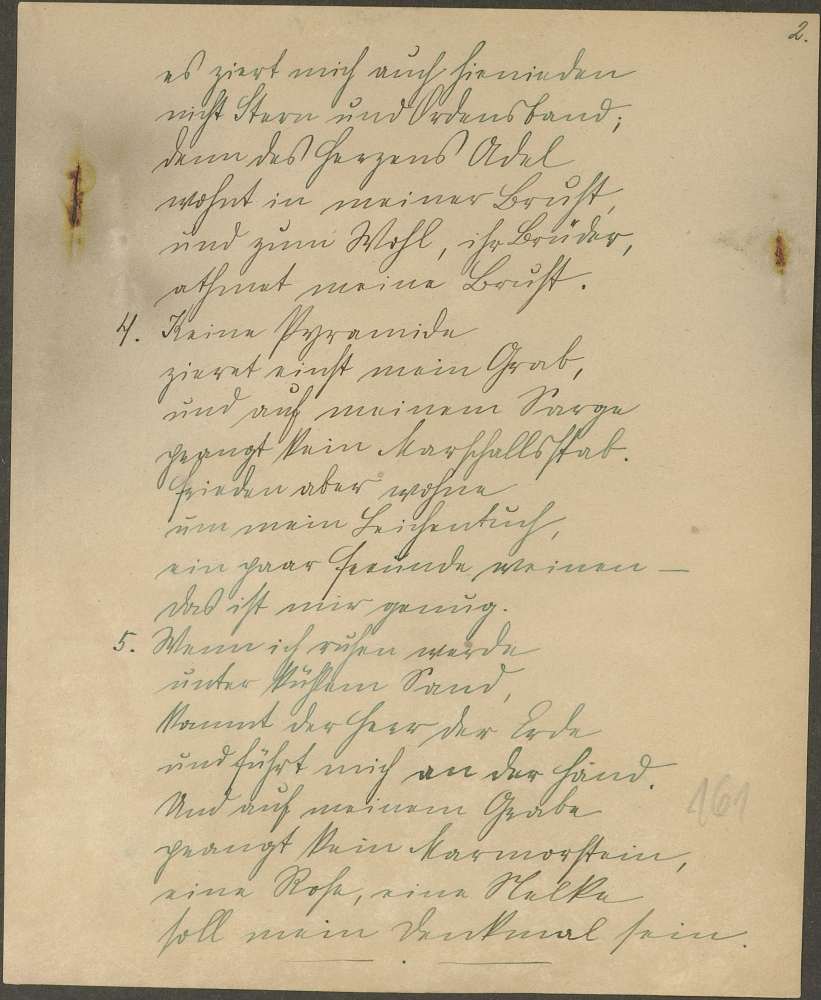 2.
es ziert mich auch hienieden
nicht Stern und Ordensband;
denn des Herzens Adel
wohnt in meiner Brust,
und zum Wohl, ihr Brüder,
athmet meine Brust.
4. Keine Pyramide
zieret einst mein Grab,
und auf meinem Sarge
prangt kein Marschallsstab.
Frieden aber wohne
um mein Leichentuch,
ein paar Freunde weinen —
das ist mir genug.
5. Wenn ich ruhen werde
unter kühlem Sand,
kommt der Herr der Erde
und führt mich an der Hand.
Und auf meinem Grabe
prangt kein Marmorstein,
eine Rose, eine Nelke
soll mein Denkmal sein.
161